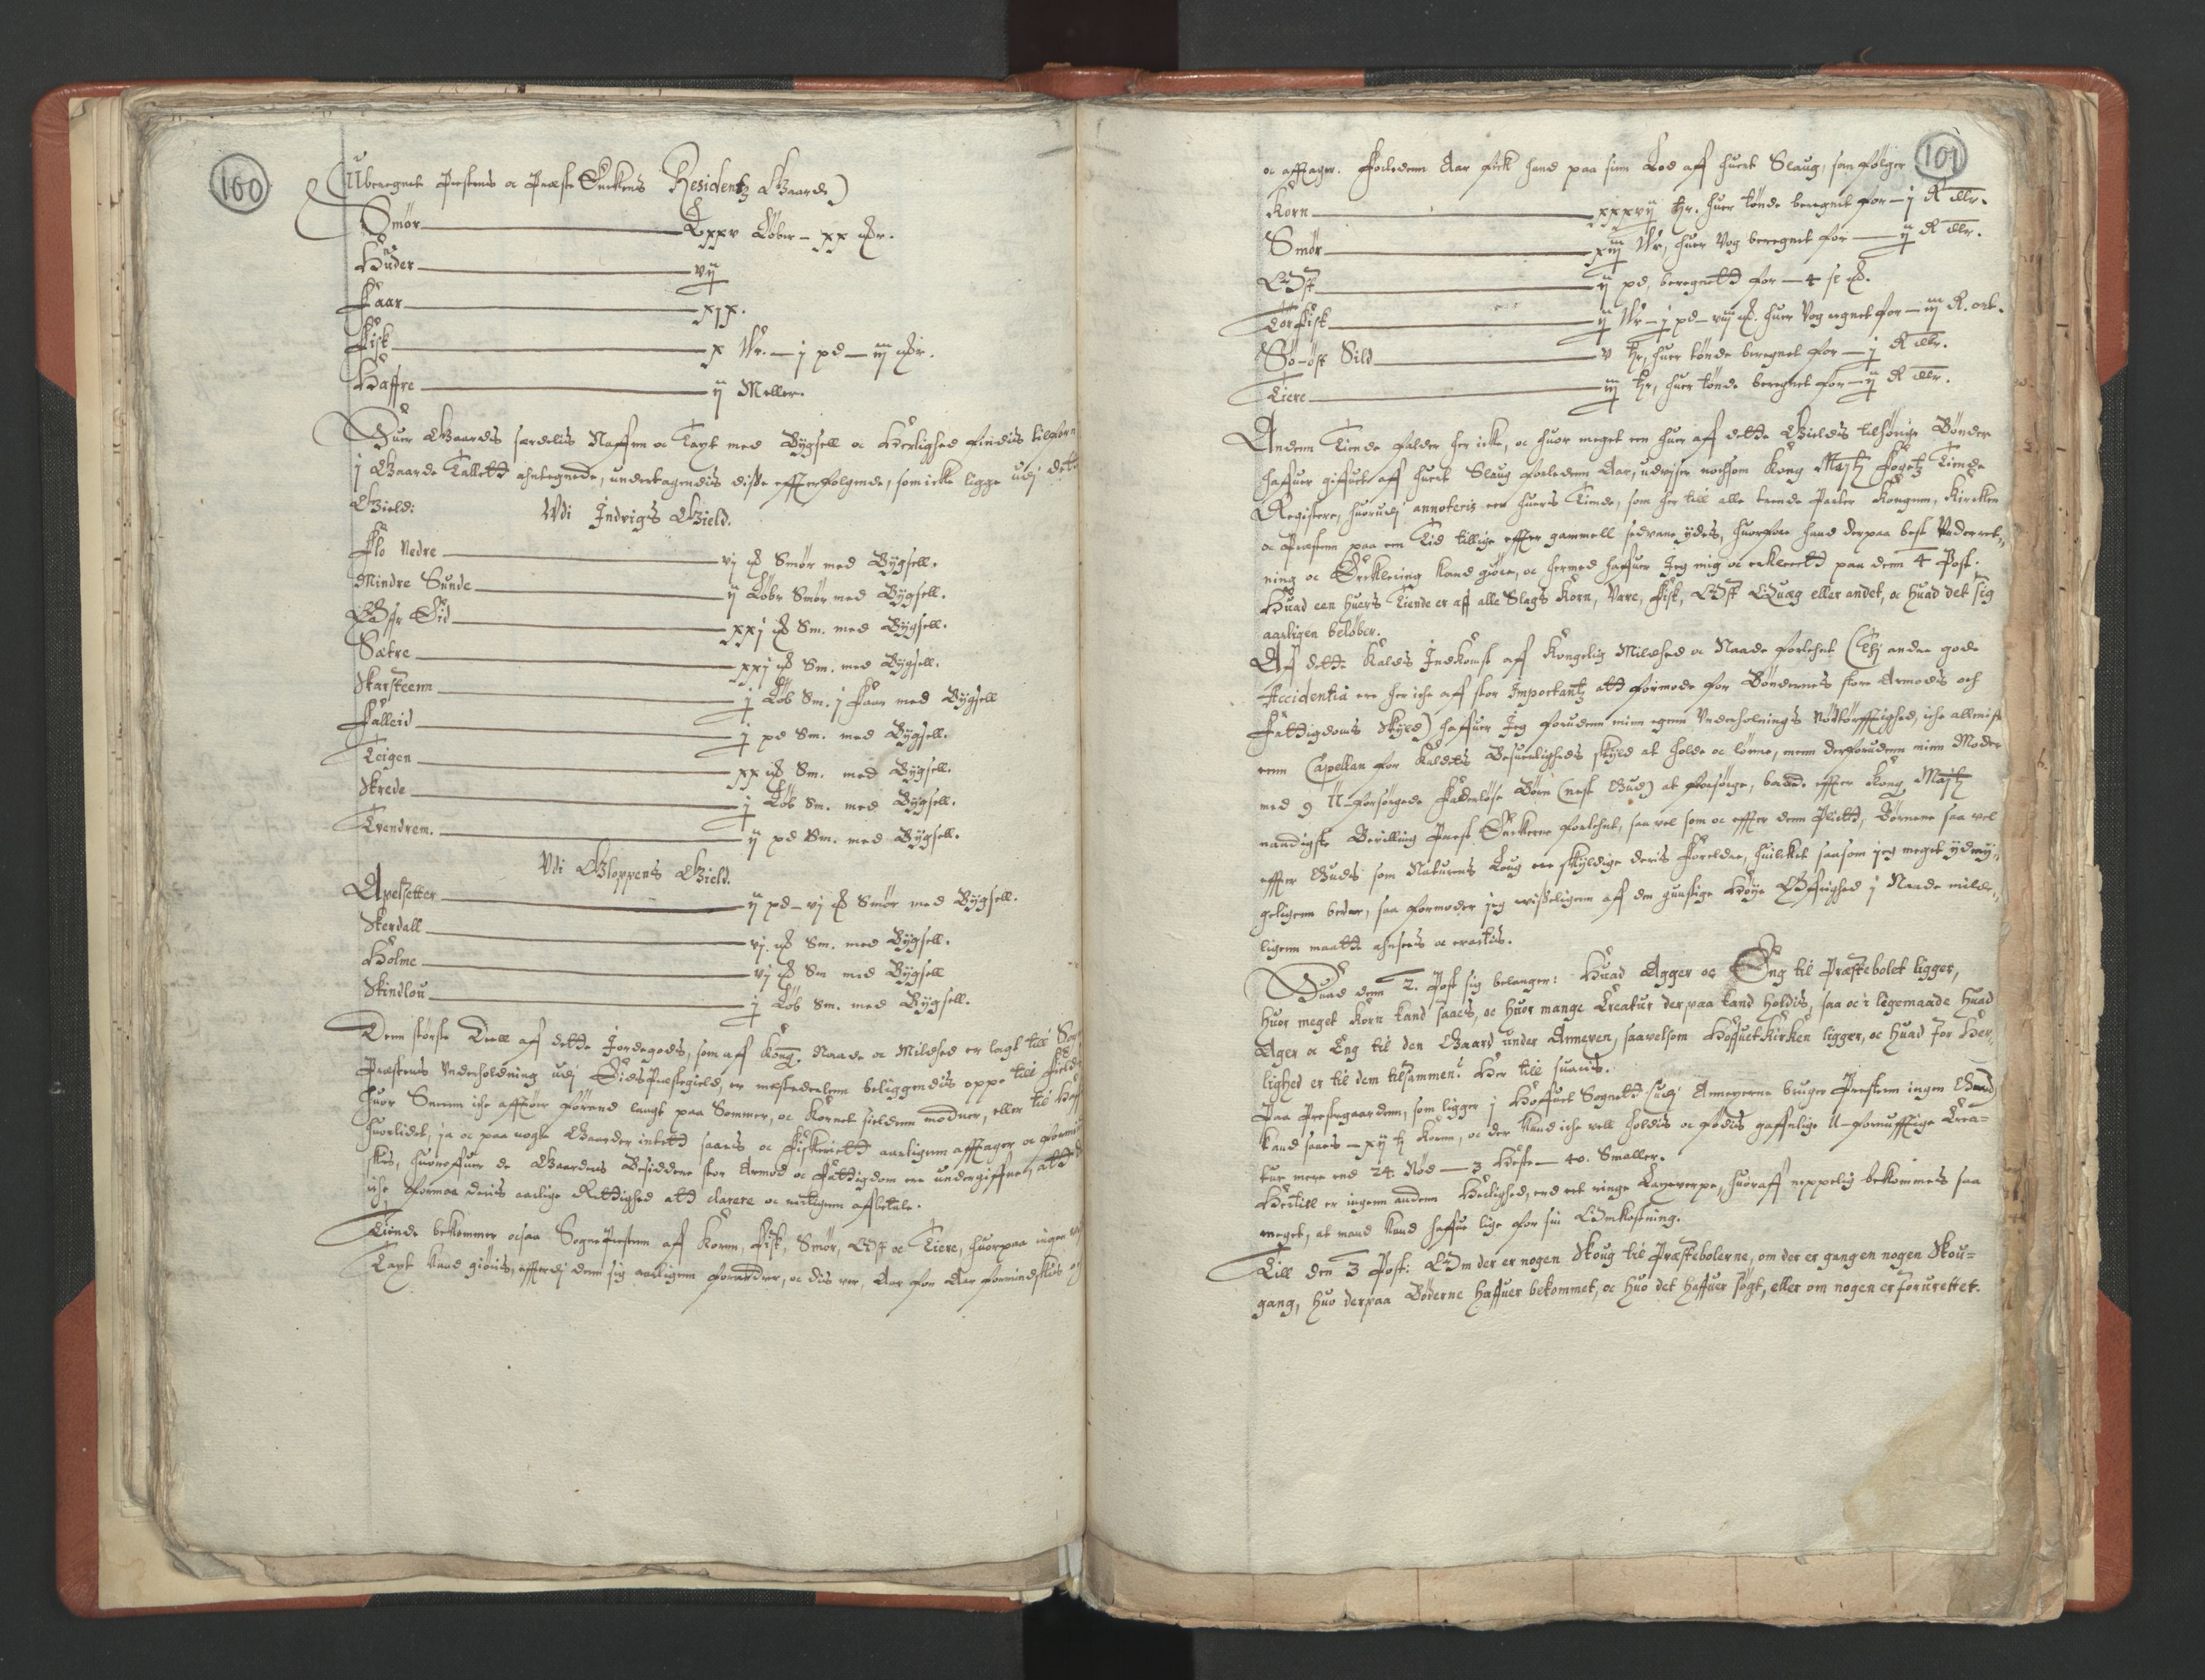 100
(Uberegnet Prestens oc Præste Enckens Residentz Gaarde)
Smør — Lxxv Løber — xx m℔r.
Huder — vij
Faar — xix.
Fisk — x Wr. — j pd — iij m℔r.
Haffre — ij Meller.
Huer Gaardis serdelis Naffn oc Taxt med Bygsell oc Herlighed findis tilforn
j Gaarde Tallett antegnede, undertagendis disse effterfølgende, som icke ligge udj dette
Gield:
Udi Indvigs Gield.
Flo Nedre — vj ℔ Smør med Bygsell.
Mindre Sunde — ij Løbr Smør med Bygsell.
Sm. med Bygsell.
Sætre — xxj ℔ Sm. med Bygsell.
Skarsteenn — j Løb Sm. j Faar med Bygsell
Falleid — j pd Sm. med Bygsell.
Teigen — xx ℔ Sm. med Bygsell.
Skrede — j Løb Sm. med Bygsell.
Tvendrem. — ij pd Sm. med Bygsell.
Vdi Gloppens Gield.
Apelsetter — ij pd — vj ℔ Smør med Bygsell.
Skerdall — vj. ℔ Sm. med Bygsell.
Holme — vj ℔ Sm med Bygsell
Skindlou — j Løb Sm. med Bygsell.
Denn største Deell af dette Jordegods, som af Kong. Naade oc Mildhed er lagt till Sog
Prestens Underholdning udj Eids Præstegield, er mestedeelenn beliggendis oppe till Fields
huor Sneenn iche affgaar førend langt paa Sommer, oc Kornet sieldenn modner, eller til Haff
huorlidet, ja oc paa nogle Gaarder intett saaes oc Fiskeriett aarligenn afftager oc formind
skes, huoroffuer de Gaardens Besiddere stor Armod oc Fattigdom ere undergiffne, att d
iche formaa deris aarlige Rettighed att clarere oc nøttigenn afbetale.
Tiende bekommer ocsaa Sognepresten af Kornn, Fisk, Smør, Ost oc Tiere, huorpaa ingen
Taxt kand giøris, effterdj denn sig aarligenn forandrer, oc dis ver, Aar for Aar formindskes
101
oc afftager. Forledenn Aar fick hand paa sinn Lod aff huert Slaug, som følger
Korn — xxxvij tr. huer tønde beregnet for — j R dlr.
Smør — xiij Wr, huer Vog beregnet for — ij R dlr.
Ost — ij pd, beregnett for — 4 ß ℔.
Tørfisk — ij Wr — j pd — viij ℔. huer Vog regnet for — iij R. ort.
Sild — v tr, huer tønde beregnet for — j R dlr.
Tiere — iij tr, huer tønde beregnet for — ij R dlr.
Andenn Tiende falder her icke, oc huor meget een huer aff dette Gieldis tilhørige Bønder
haffuer giffuet aff huert Slaug forledenn Aar, udviser nochsom Kong Maytz Fogetz Tiende
Registere, huorudj annoteris een huers Tiende, som her till alle trende Parter Kongen, Kircken
oc Prestenn paa een Tid tillige effter gammell sedvane ydes, huorfore hand derpaa best Vnderret„
ning oc Ercklering kand giøre, oc hermed haffuer Jeg mig oc erkleret paa denn 4 Post.
Huad een huers Tiende er aff alle Slags Korn, Vare, Fisk, Ost Quæg eller andet, oc huad det sig
aarligen beløber.
Af dette Kalds Indkomst aff Kongelig Mildhed oc Naade forlehnt (Thj andre gode
Accidentia ere her iche aff stor Importantz att formode for Bøndernes store Armods och
Fattigdoms Skyld) haffuer Jeg forudenn minn egenn Underholdnings Nøttørfftighed, iche alleniste
enn Capellan for Kaldets Besuerligheds skyld at holde oc lønne, menn derforudenn minn Moder
med 9 U-forsørgede Faderløse Børn (nest Gud) at forsørge, baade effter Kong Maytz
naadigste Bevilling Præst Enckerne forlehnt, saa vel som oc effter denn Plictt, Børnene saa vel
effter Guds som Naturens Loug ere skyldige deris Foreldre, huilcket saasom jeg meget ydmy„
geligenn beder, saa formoder jeg visseligenn aff den gunstige Høye Øffrighed j Naade milde„
ligenn maatte ansees oc eractis.
Huad denn 2. Post sig belanger: Huad Agger oc Eng til Præstebolet ligger,
huor meget Korn kand saaes, oc huor mange Creatur derpaa kand holdis, saa oc i ligemaade huad
Ager oc Eng til den Gaard under Annexen, saavelsom Hoffuet Kirken ligger, oc huad for Her„
lighed er til dem tilsammen? Her till suaris.
Paa Prestegaardenn, som ligger j Hoffuet Sognett (udj Annexerne bruger Prestenn ingen Gaard)
kand saaes — xij tr Kornn, oc der kand iche vell holdis oc fødis gaffnlige U-fornufftige Crea=
tur mere end 24 Nød — 3 Heste — 40. Smaller.
Hertill er ingenn andenn Herlighed, end eet ringe Laxeverpe, huoraff neppelig bekommes saa
meget, at mand kand haffue lige for sin Omkostning.
Till den 3 Post: Om der er nogen Skoug til Præstebolerne, om der er gangen nogen Skou=
gang, huo derpaa Bøderne haffuer bekommet, oc huo det haffuer søgt, eller om nogen er forurettet.